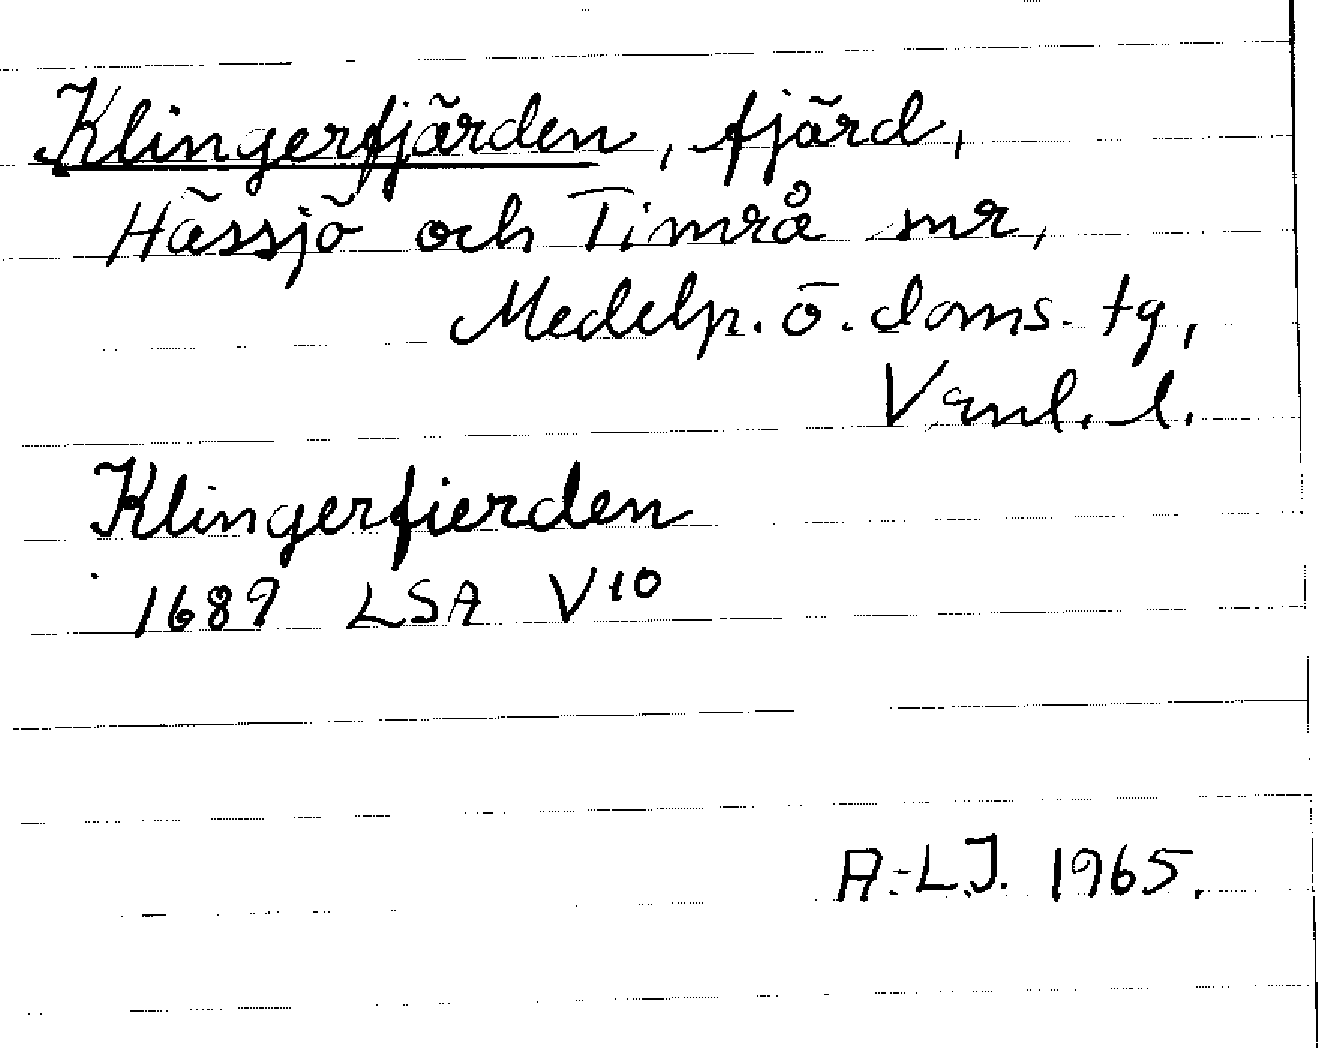 Klingerfjärden, fjärd,
Hässjö och Timrå snr,
Medelp. ö. doms. tg,
Vrnl. l.
Klingerfierden
1689 LSA V10
A.-L.J. 1965.